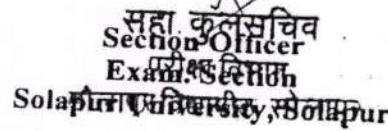 सहा. कुलसचिव
Section Officer
परीक्षा विभाग
Exam. Section
सोलापूर विद्यापीठ, सोलापूर
Solapur University, Solapur